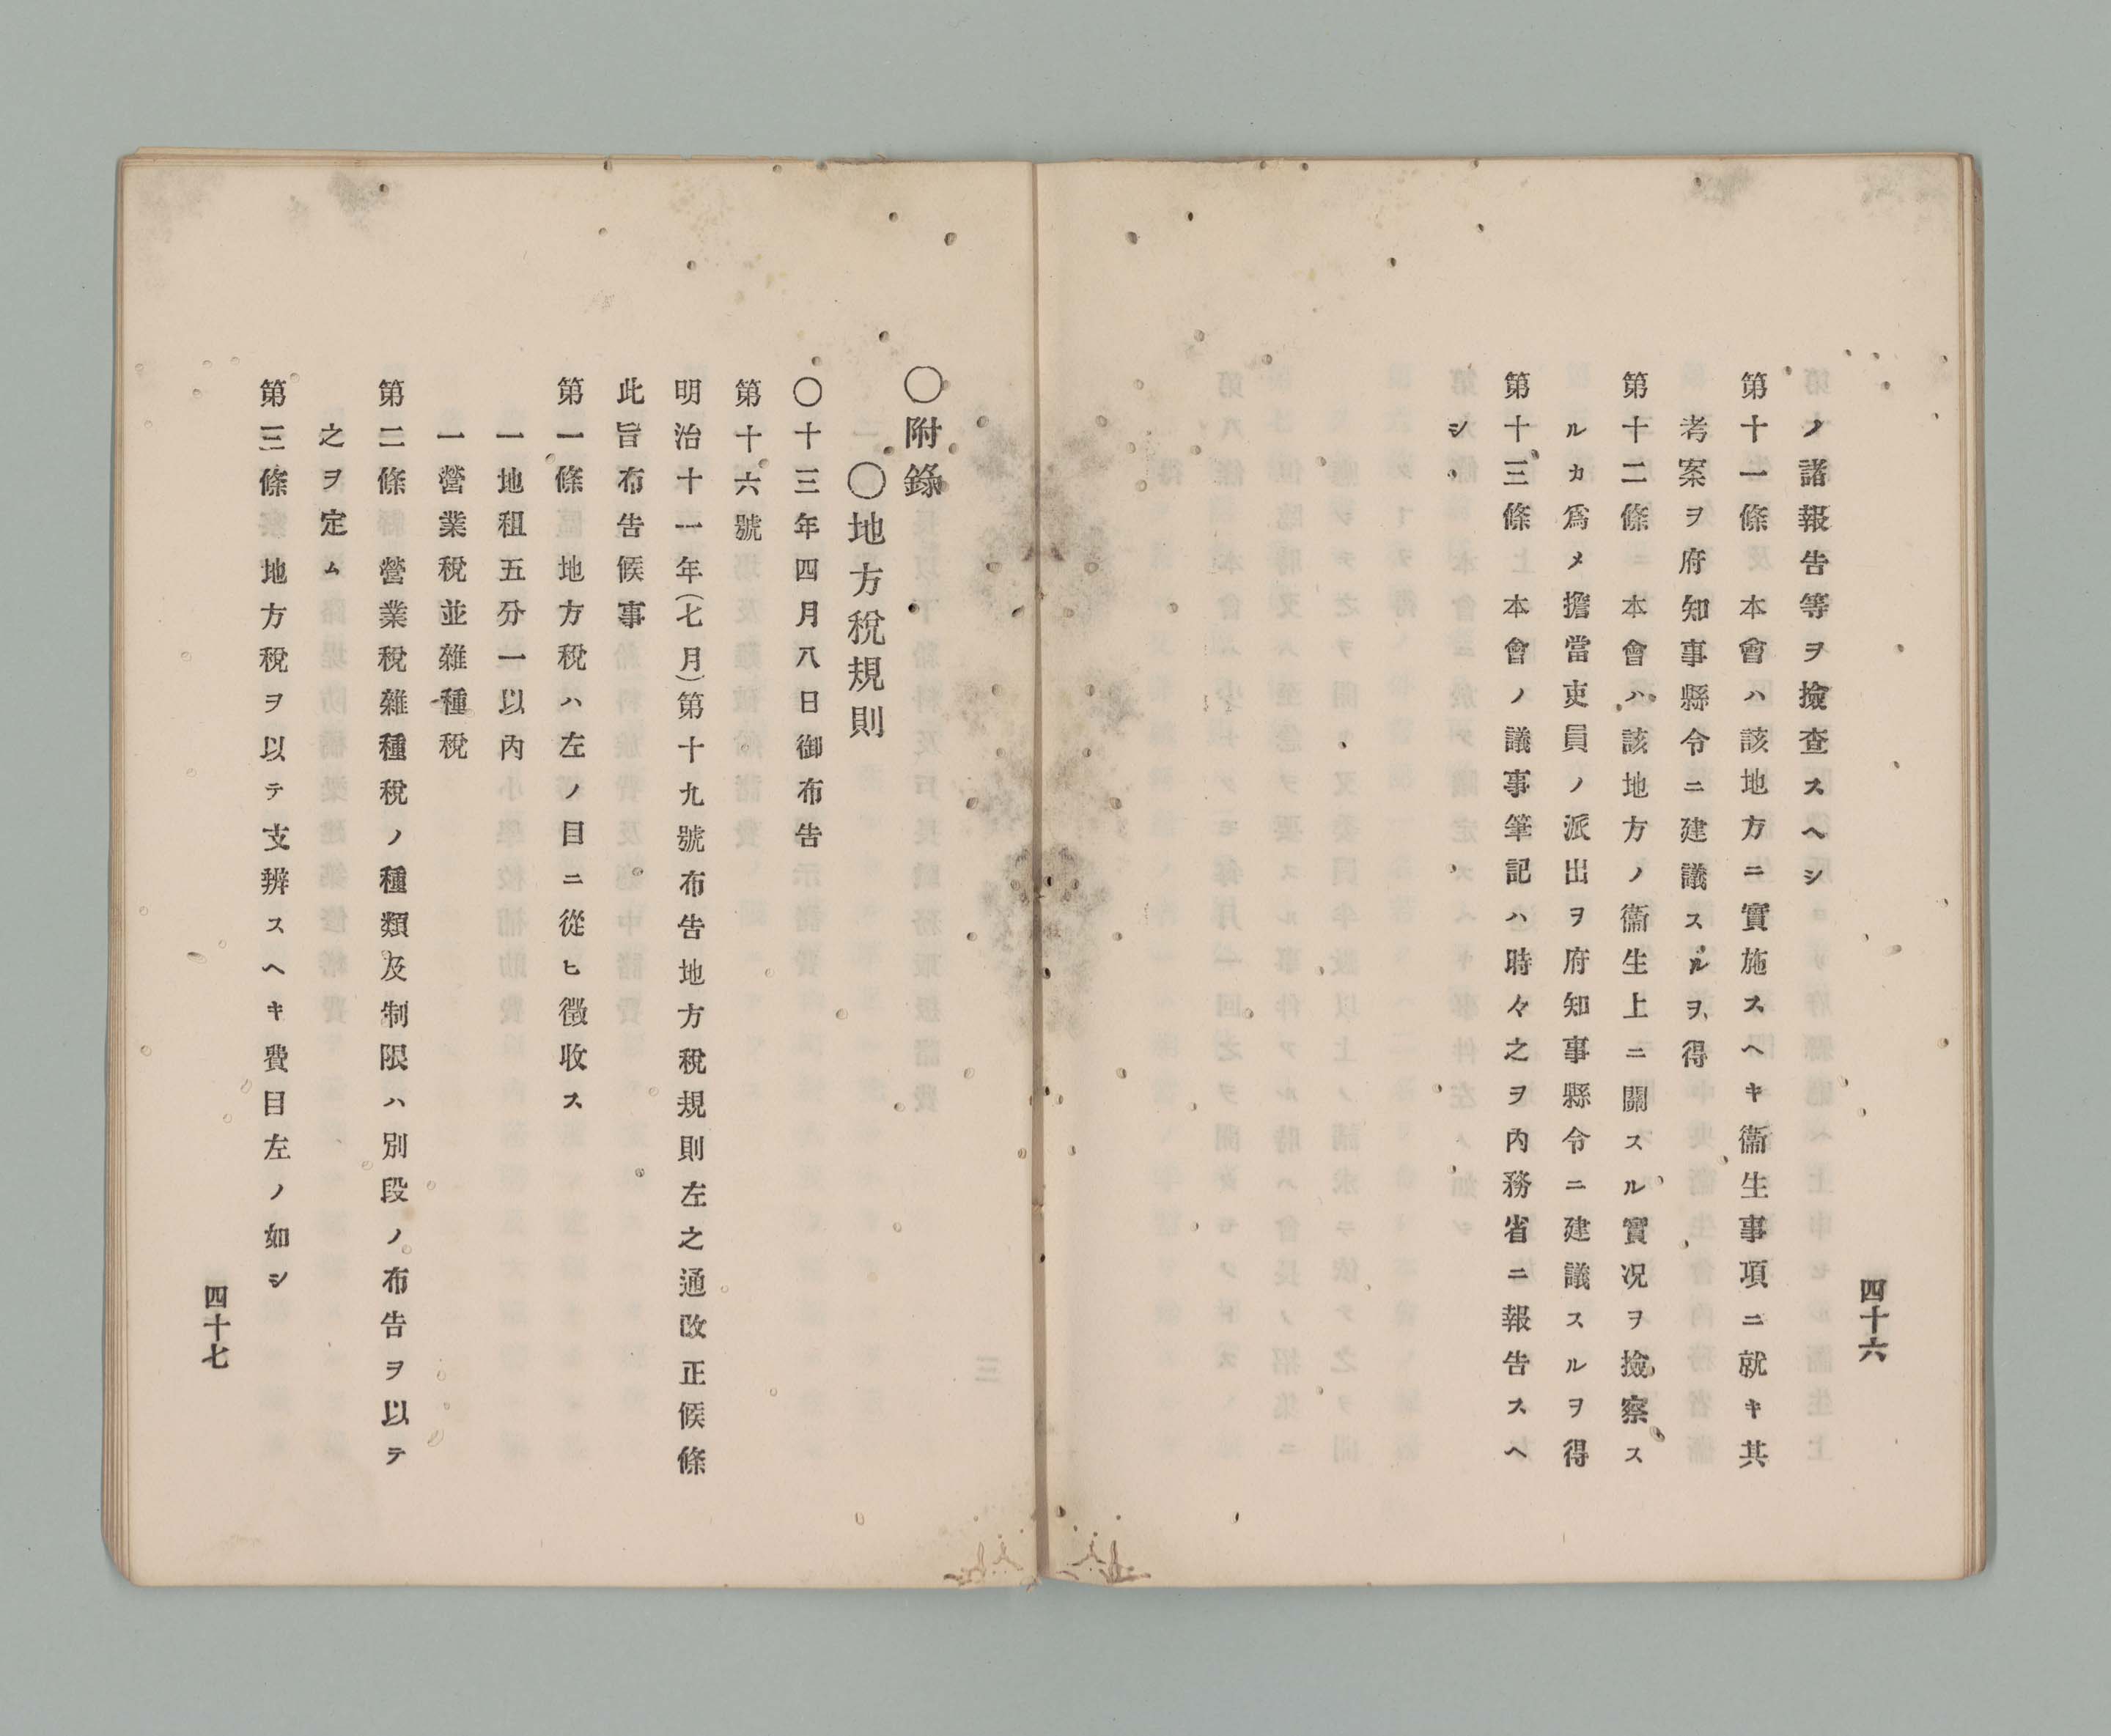 四十六
ノ諸報告等ヲ撿查スヘシ
第十一條 本會ハ該地方ニ實施スヘキ衞生事項ニ就キ其
考案ヲ府知事縣令ニ建議スルヲ得
第十二條 本會ハ該地方ノ衞生上ニ關スル實況ヲ撿察ス
ルカ爲メ擔當吏員ノ派出ヲ府知事縣令ニ建議スルヲ得
第十三條 本會ノ議事筆記ハ時々之ヲ內務省ニ報告スヘ
シ
〇附錄
〇地方稅規則
〇十三年四月八日御布告
第十六號
明治十一年(七月)第十九號布告地方稅規則左之通改正候條
此旨布告候事
第一條 地方稅ハ左ノ目ニ從ヒ徵收ス
一地租五分一以內
一營業稅並雜種稅
第二條 營業稅雜種稅ノ種類及制限ハ別段ノ布告ヲ以テ
之ヲ定ム
第三條 地方稅ヲ以テ支辨スヘキ費目左ノ如シ
四十七